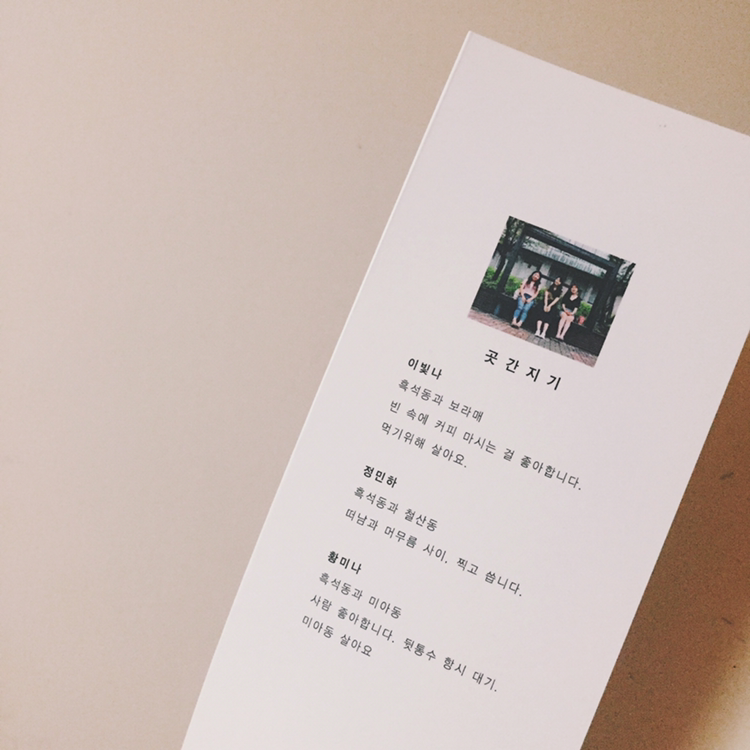 곳간지기
이빛나
흑석동과 보라매
빈 속에 커피 마시는 걸 좋아합니다.
먹기위해 살아요.
정민하
흑석동과 철산동
떠남과 머무름 사이. 찍고 씁니다.
황미나
흑석동과 미아동
사람 좋아합니다. 뒷통수 항시 대기.
미아동 살아요